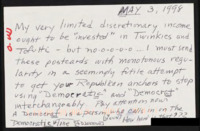 MAY 3, 1998
My very limited discretionary income
ought to be "invested" in Twinkies and
Tofutti - but no-o-o-o-o I must send
these postcards with monotonous regu-
larity in a seemingly futile attempt
to get your Republican anchors to stop
using "Democratic" and "Democrat"
interchangeably. Pay attention now:
A Democrat is a person who
Democratic